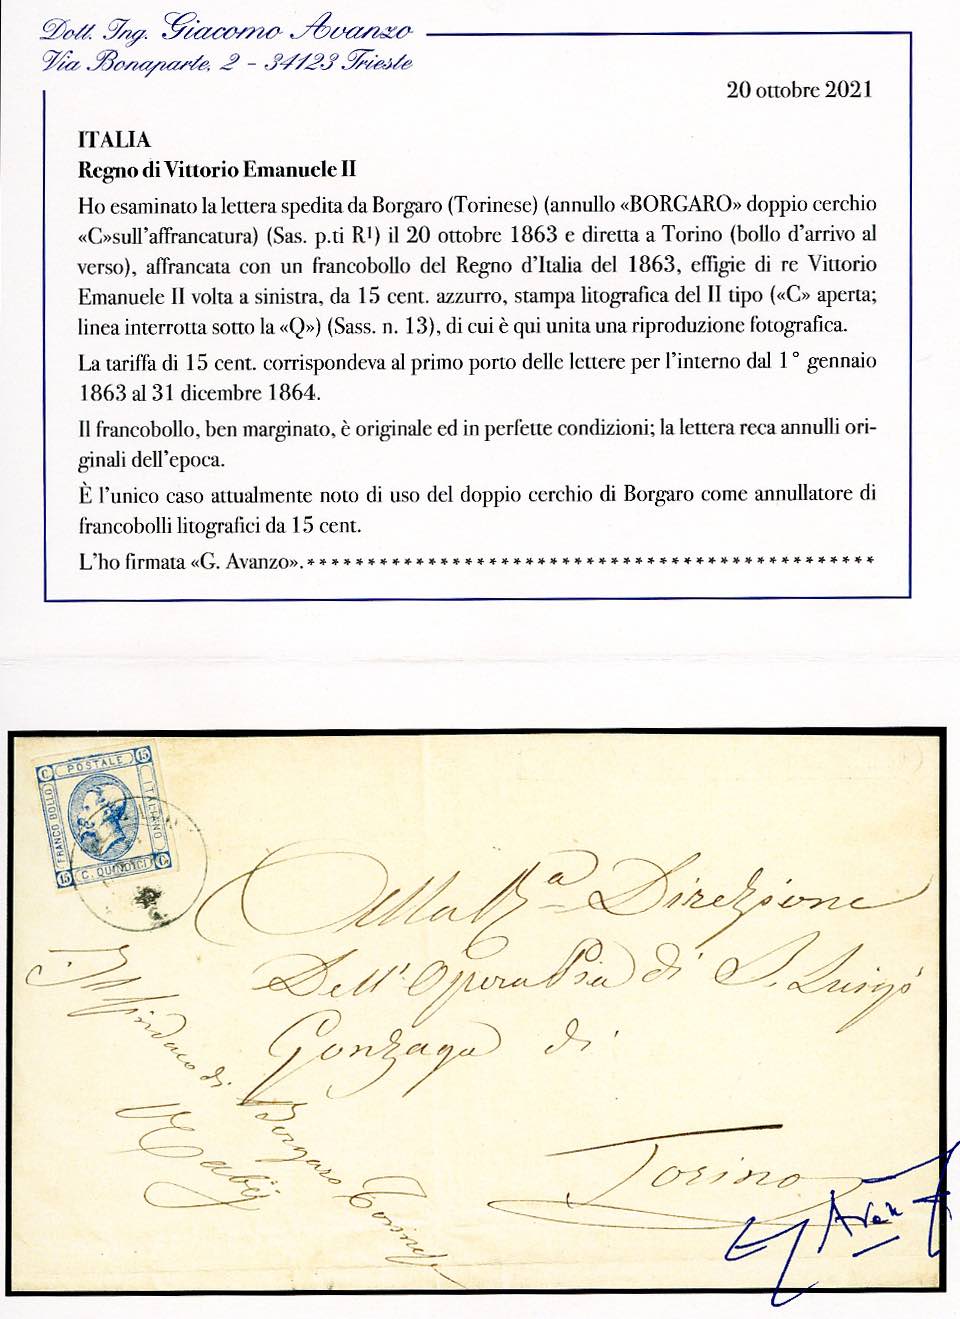 Dott. Ing. Giacomo Avanzo
Via Bonaparte, 2 - 34123 Trieste
20 ottobre 2021
ITALIA
Regno di Vittorio Emanuele II
Ho esaminato la lettera spedita da Borgaro (Torinese) (annullo «BORGARO» doppio cerchio
«C»sull'affrancatura) (Sas. p.ti R¹) il 20 ottobre 1863 e diretta a Torino (bollo d'arrivo al
verso), affrancata con un francobollo del Regno d'Italia del 1863, effigie di re Vittorio
Emanuele II volta a sinistra, da 15 cent. azzurro, stampa litografica del II tipo («C» aperta;
linea interrotta sotto la «Q») (Sass. n. 13), di cui è qui unita una riproduzione fotografica.
La tariffa di 15 cent. corrispondeva al primo porto delle lettere per l'interno dal 1° gennaio
1863 al 31 dicembre 1864.
Il francobollo, ben marginato, è originale ed in perfette condizioni; la lettera reca annulli ori-
ginali dell'epoca.
È l'unico caso attualmente noto di uso del doppio cerchio di Borgaro come annullatore di
francobolli litografici da 15 cent.
L'ho firmata «G. Avanzo».***********************************************
C POSTALE 15
FRANCO BOLLO
ITALIANO
15 C. QUINDICI C
Alla R.a Direzione
Dell'Opera Pia di S. Luigi
Gonzaga di
Torino
Il Sindaco di Borgaro Torinese